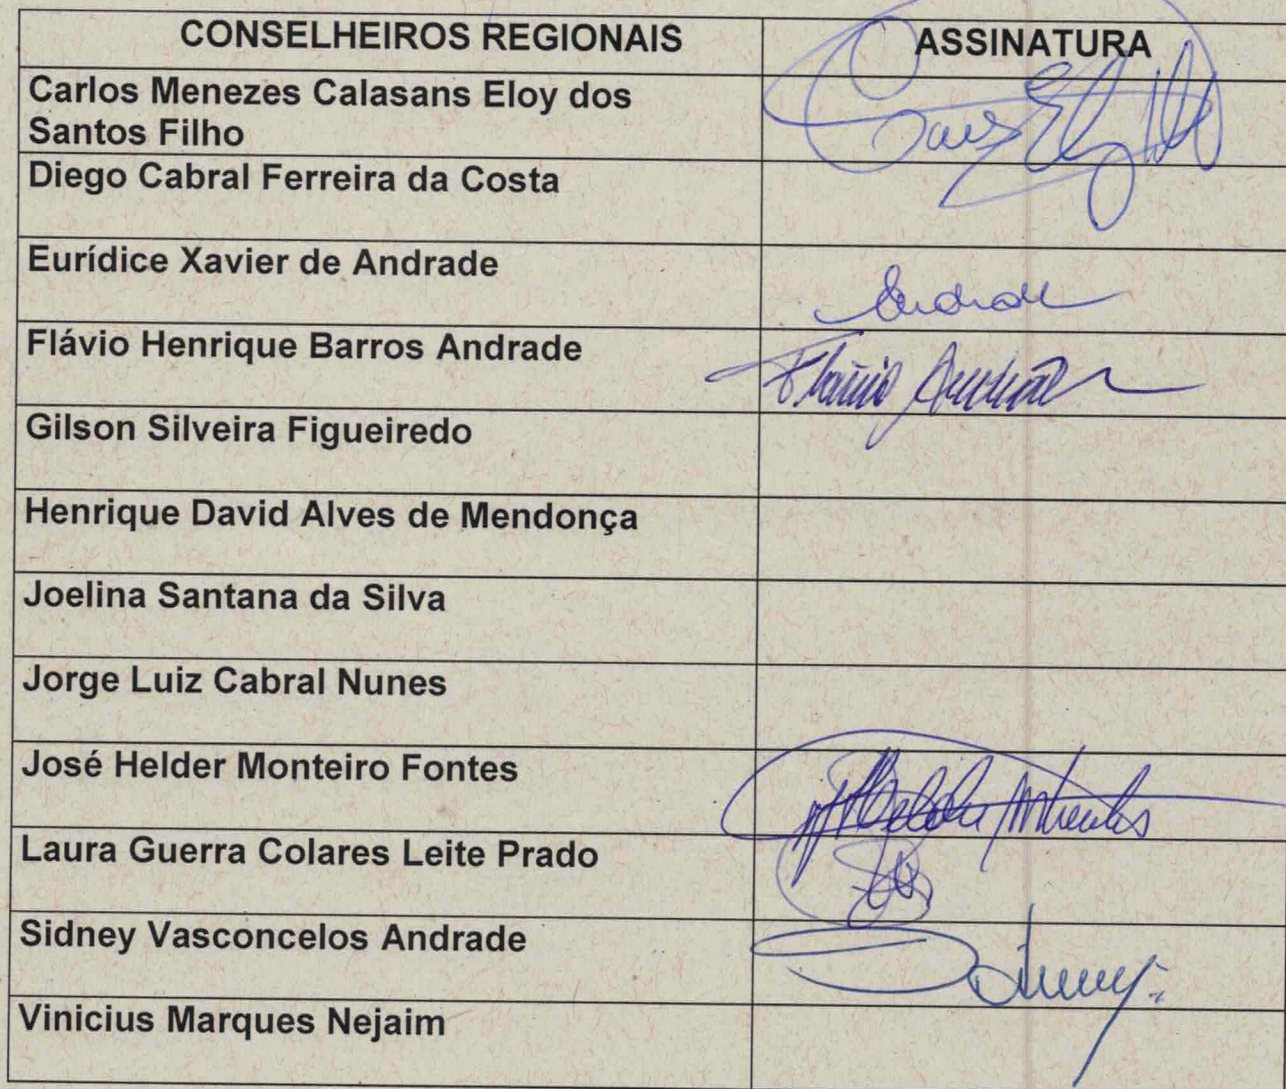 CONSELHEIROS REGIONAIS ASSINATURA
Carlos Menezes Calasans Eloy dos
Santos Filho
Diego Cabral Ferreira da Costa
Eurídice Xavier de Andrade
Andrade
Flávio Henrique Barros Andrade
Flávio Andrade
Gilson Silveira Figueiredo
Henrique David Alves de Mendonça
Joelina Santana da Silva
Jorge Luiz Cabral Nunes
José Helder Monteiro Fontes
Laura Guerra Colares Leite Prado
Sidney Vasconcelos Andrade
Sidney
Vinicius Marques Nejaim